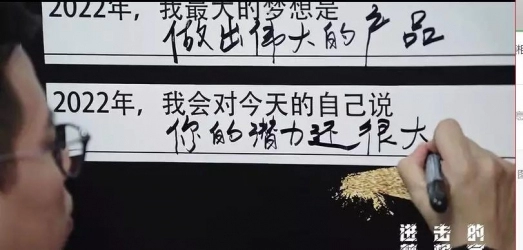 2022年，我最大的梦想是
做出伟大的产品
2022年，我会对今天的自己说
你的潜力还很大
进击的